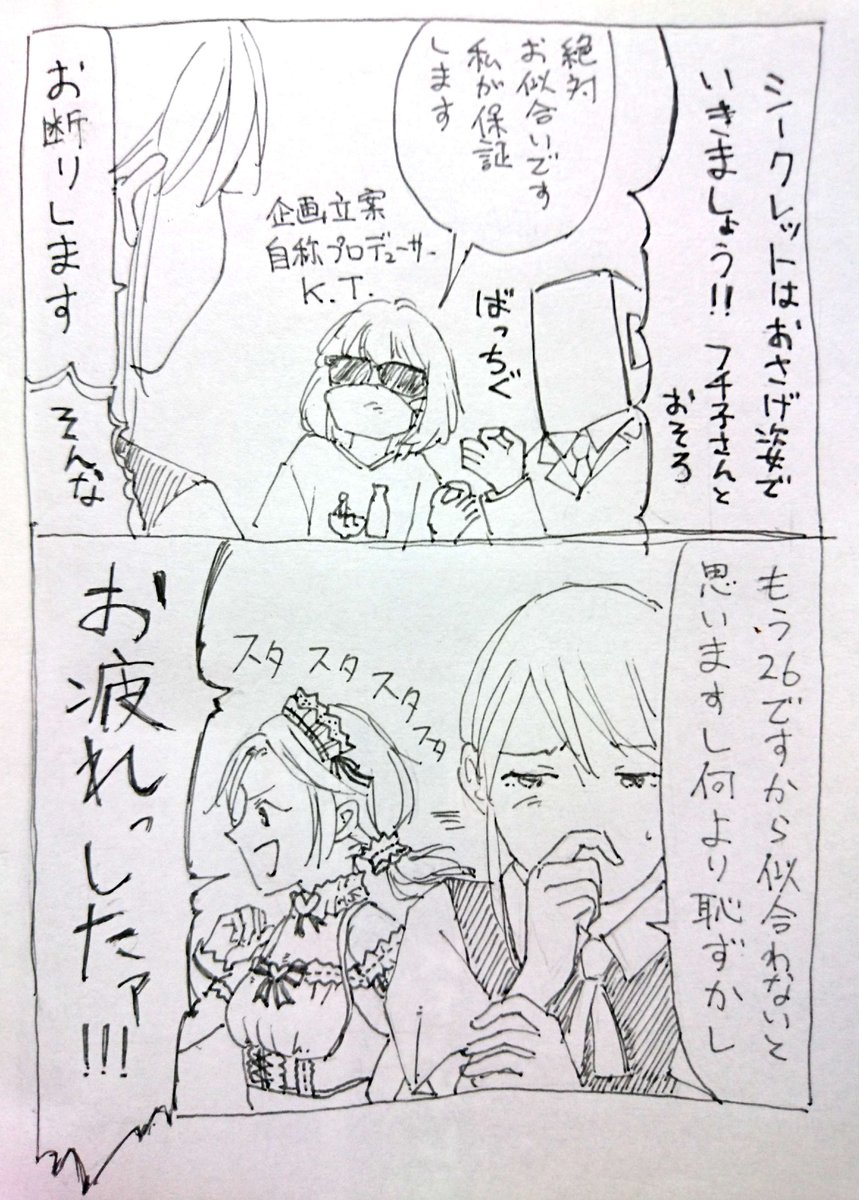 シークレットはおさげ姿で
いきましょう!!フチ子さんと
おそろ
絶対
お似合いです
私が保証
します
企画立案
自称プロデューサー
K.T.
ばっちぐ
お断りします
そんな
もう26ですから似合わないと
思いますし何より恥ずかし
スタスタスタスタ
お疲れっしたァ!!!